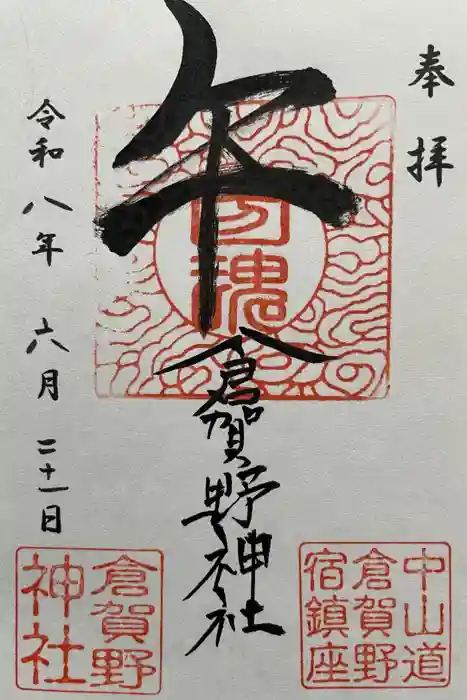 奉拝
午
國魂
倉賀野神社
令和八年 六月 二十一日
中山道
倉賀野
宿鎮座
倉賀野
神社